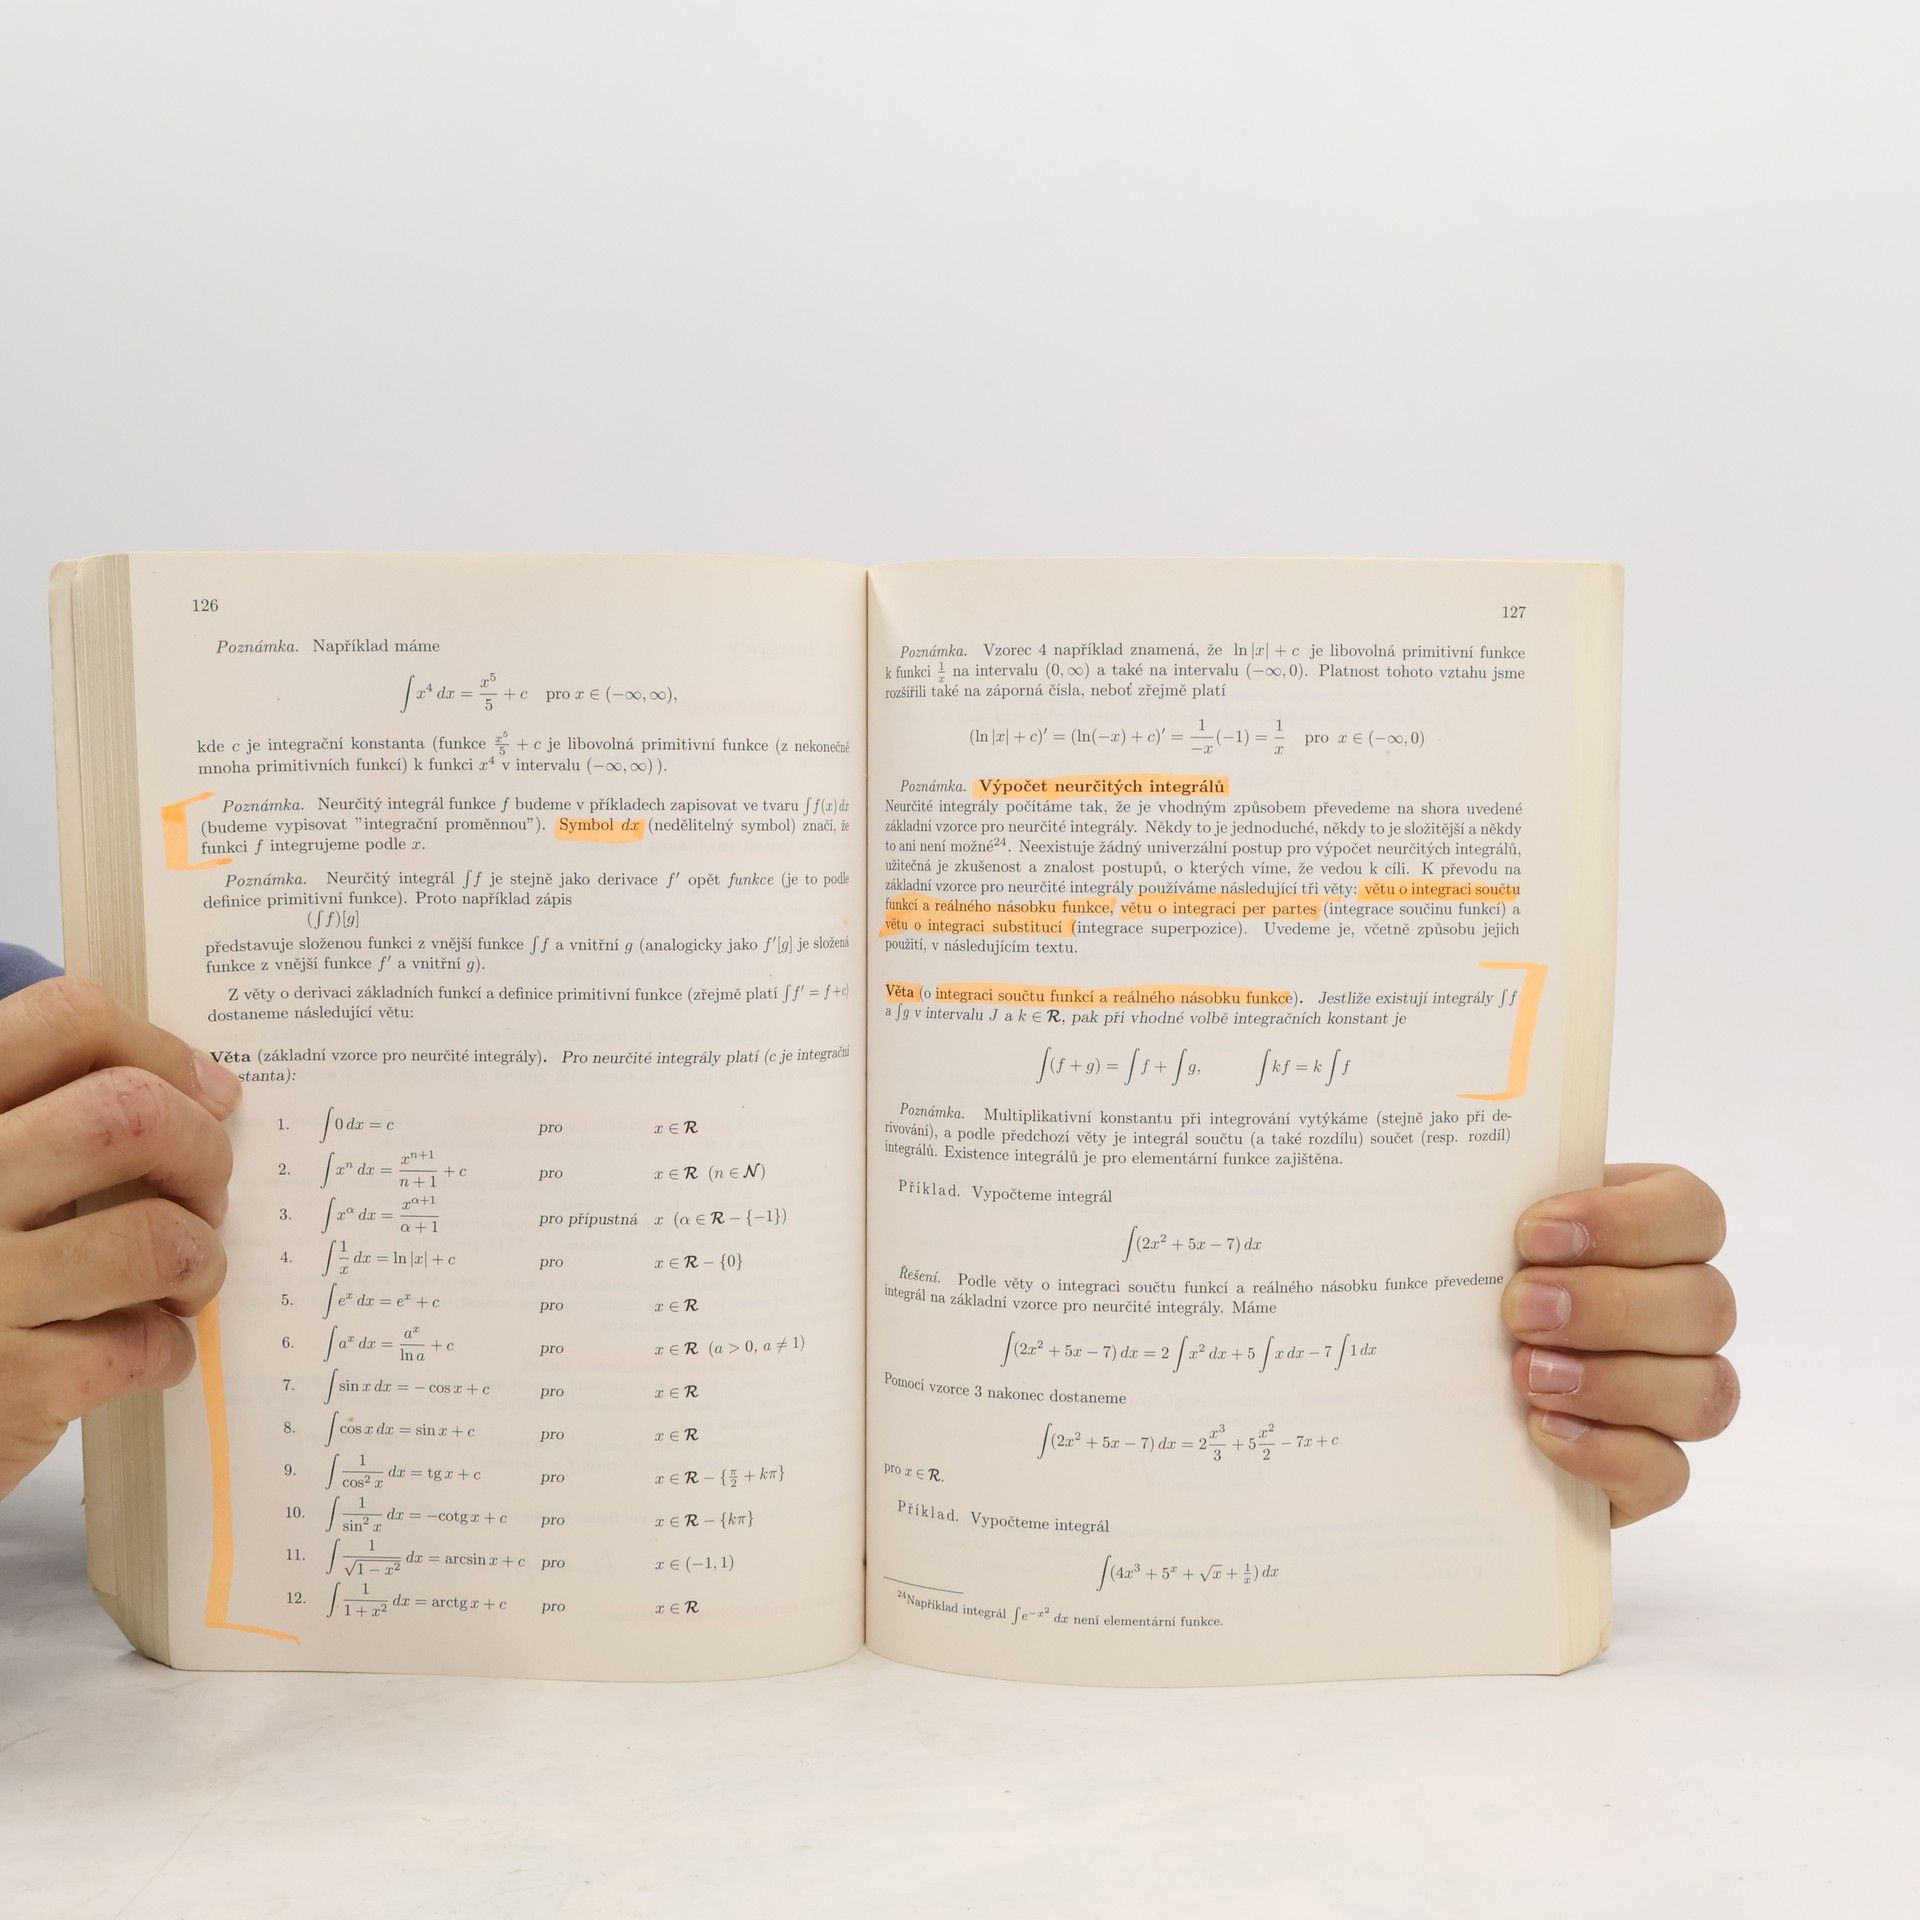 126
Poznámka. Například máme
∫x⁴ dx = x⁵/5 + c pro x ∈ (−∞, ∞),
kde c je integrační konstanta (funkce x⁵/5 + c je libovolná primitivní funkce (z nekonečně
mnoha primitivních funkcí) k funkci x⁴ v intervalu (−∞, ∞) ).
Poznámka. Neurčitý integrál funkce f budeme v příkladech zapisovat ve tvaru ∫f(x) dx
(budeme vypisovat "integrační proměnnou"). Symbol dx (nedělitelný symbol) značí, že
funkci f integrujeme podle x.
Poznámka. Neurčitý integrál ∫f je stejně jako derivace f′ opět funkce (je to podle
definice primitivní funkce). Proto například zápis
(∫f)[g]
představuje složenou funkci z vnější funkce ∫f a vnitřní g (analogicky jako f′[g] je složená
funkce z vnější funkce f′ a vnitřní g).
Z věty o derivaci základních funkcí a definice primitivní funkce (zřejmě platí ∫f′ = f+c)
dostaneme následující větu:
Věta (základní vzorce pro neurčité integrály). Pro neurčité integrály platí (c je integrační
stanta):
1. ∫0 dx = c pro x ∈ R
2. ∫xⁿ dx = xⁿ⁺¹/(n + 1) + c pro x ∈ R (n ∈ N)
3. ∫x^α dx = x^(α+1)/(α + 1) pro přípustná x (α ∈ R − {−1})
4. ∫1/x dx = ln |x| + c pro x ∈ R − {0}
5. ∫eˣ dx = eˣ + c pro x ∈ R
6. ∫aˣ dx = aˣ/ln a + c pro x ∈ R (a > 0, a ≠ 1)
7. ∫sin x dx = − cos x + c pro x ∈ R
8. ∫cos x dx = sin x + c pro x ∈ R
9. ∫1/cos² x dx = tg x + c pro x ∈ R − {π/2 + kπ}
10. ∫1/sin² x dx = −cotg x + c pro x ∈ R − {kπ}
11. ∫1/√(1 − x²) dx = arcsin x + c pro x ∈ (−1, 1)
12. ∫1/(1 + x²) dx = arctg x + c pro x ∈ R
127
Poznámka. Vzorec 4 například znamená, že ln |x| + c je libovolná primitivní funkce
k funkci 1/x na intervalu (0, ∞) a také na intervalu (−∞, 0). Platnost tohoto vztahu jsme
rozšířili také na záporná čísla, neboť zřejmě platí
(ln |x| + c)′ = (ln(−x) + c)′ = 1/−x (−1) = 1/x pro x ∈ (−∞, 0)
Poznámka. Výpočet neurčitých integrálů
Neurčité integrály počítáme tak, že je vhodným způsobem převedeme na shora uvedené
základní vzorce pro neurčité integrály. Někdy to je jednoduché, někdy to je složitější a někdy
to ani není možné²⁴. Neexistuje žádný univerzální postup pro výpočet neurčitých integrálů,
užitečná je zkušenost a znalost postupů, o kterých víme, že vedou k cíli. K převodu na
základní vzorce pro neurčité integrály používáme následující tři věty: větu o integraci součtu
funkcí a reálného násobku funkce, větu o integraci per partes (integrace součinu funkcí) a
větu o integraci substitucí (integrace superpozice). Uvedeme je, včetně způsobu jejich
použití, v následujícím textu.
Věta (o integraci součtu funkcí a reálného násobku funkce). Jestliže existují integrály ∫f
a ∫g v intervalu J a k ∈ R, pak při vhodné volbě integračních konstant je
∫(f + g) = ∫f + ∫g, ∫kf = k ∫f
Poznámka. Multiplikativní konstantu při integrování vytýkáme (stejně jako při de-
rivování), a podle předchozí věty je integrál součtu (a také rozdílu) součet (resp. rozdíl)
integrálů. Existence integrálů je pro elementární funkce zajištěna.
Příklad. Vypočteme integrál
∫(2x² + 5x − 7) dx
Řešení. Podle věty o integraci součtu funkcí a reálného násobku funkce převedeme
integrál na základní vzorce pro neurčité integrály. Máme
∫(2x² + 5x − 7) dx = 2 ∫x² dx + 5 ∫x dx − 7 ∫1 dx
Pomocí vzorce 3 nakonec dostaneme
∫(2x² + 5x − 7) dx = 2 x³/3 + 5 x²/2 − 7x + c
pro x ∈ R.
Příklad. Vypočteme integrál
∫(4x³ + 5ˣ + √x + 1/x) dx
²⁴Například integrál ∫e^(−x²) dx není elementární funkce.